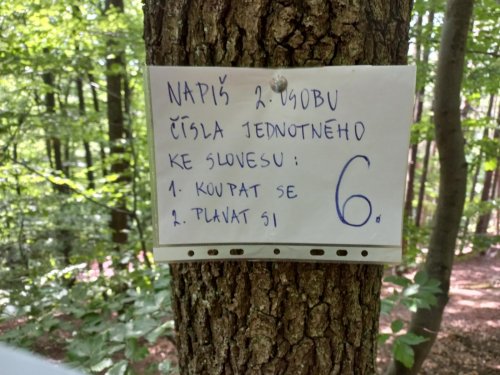 NAPIŠ 2. OSOBU
ČÍSLA JEDNOTNÉHO
KE SLOVESU:
1. KOUPAT SE
2. PLAVAT SI
6.